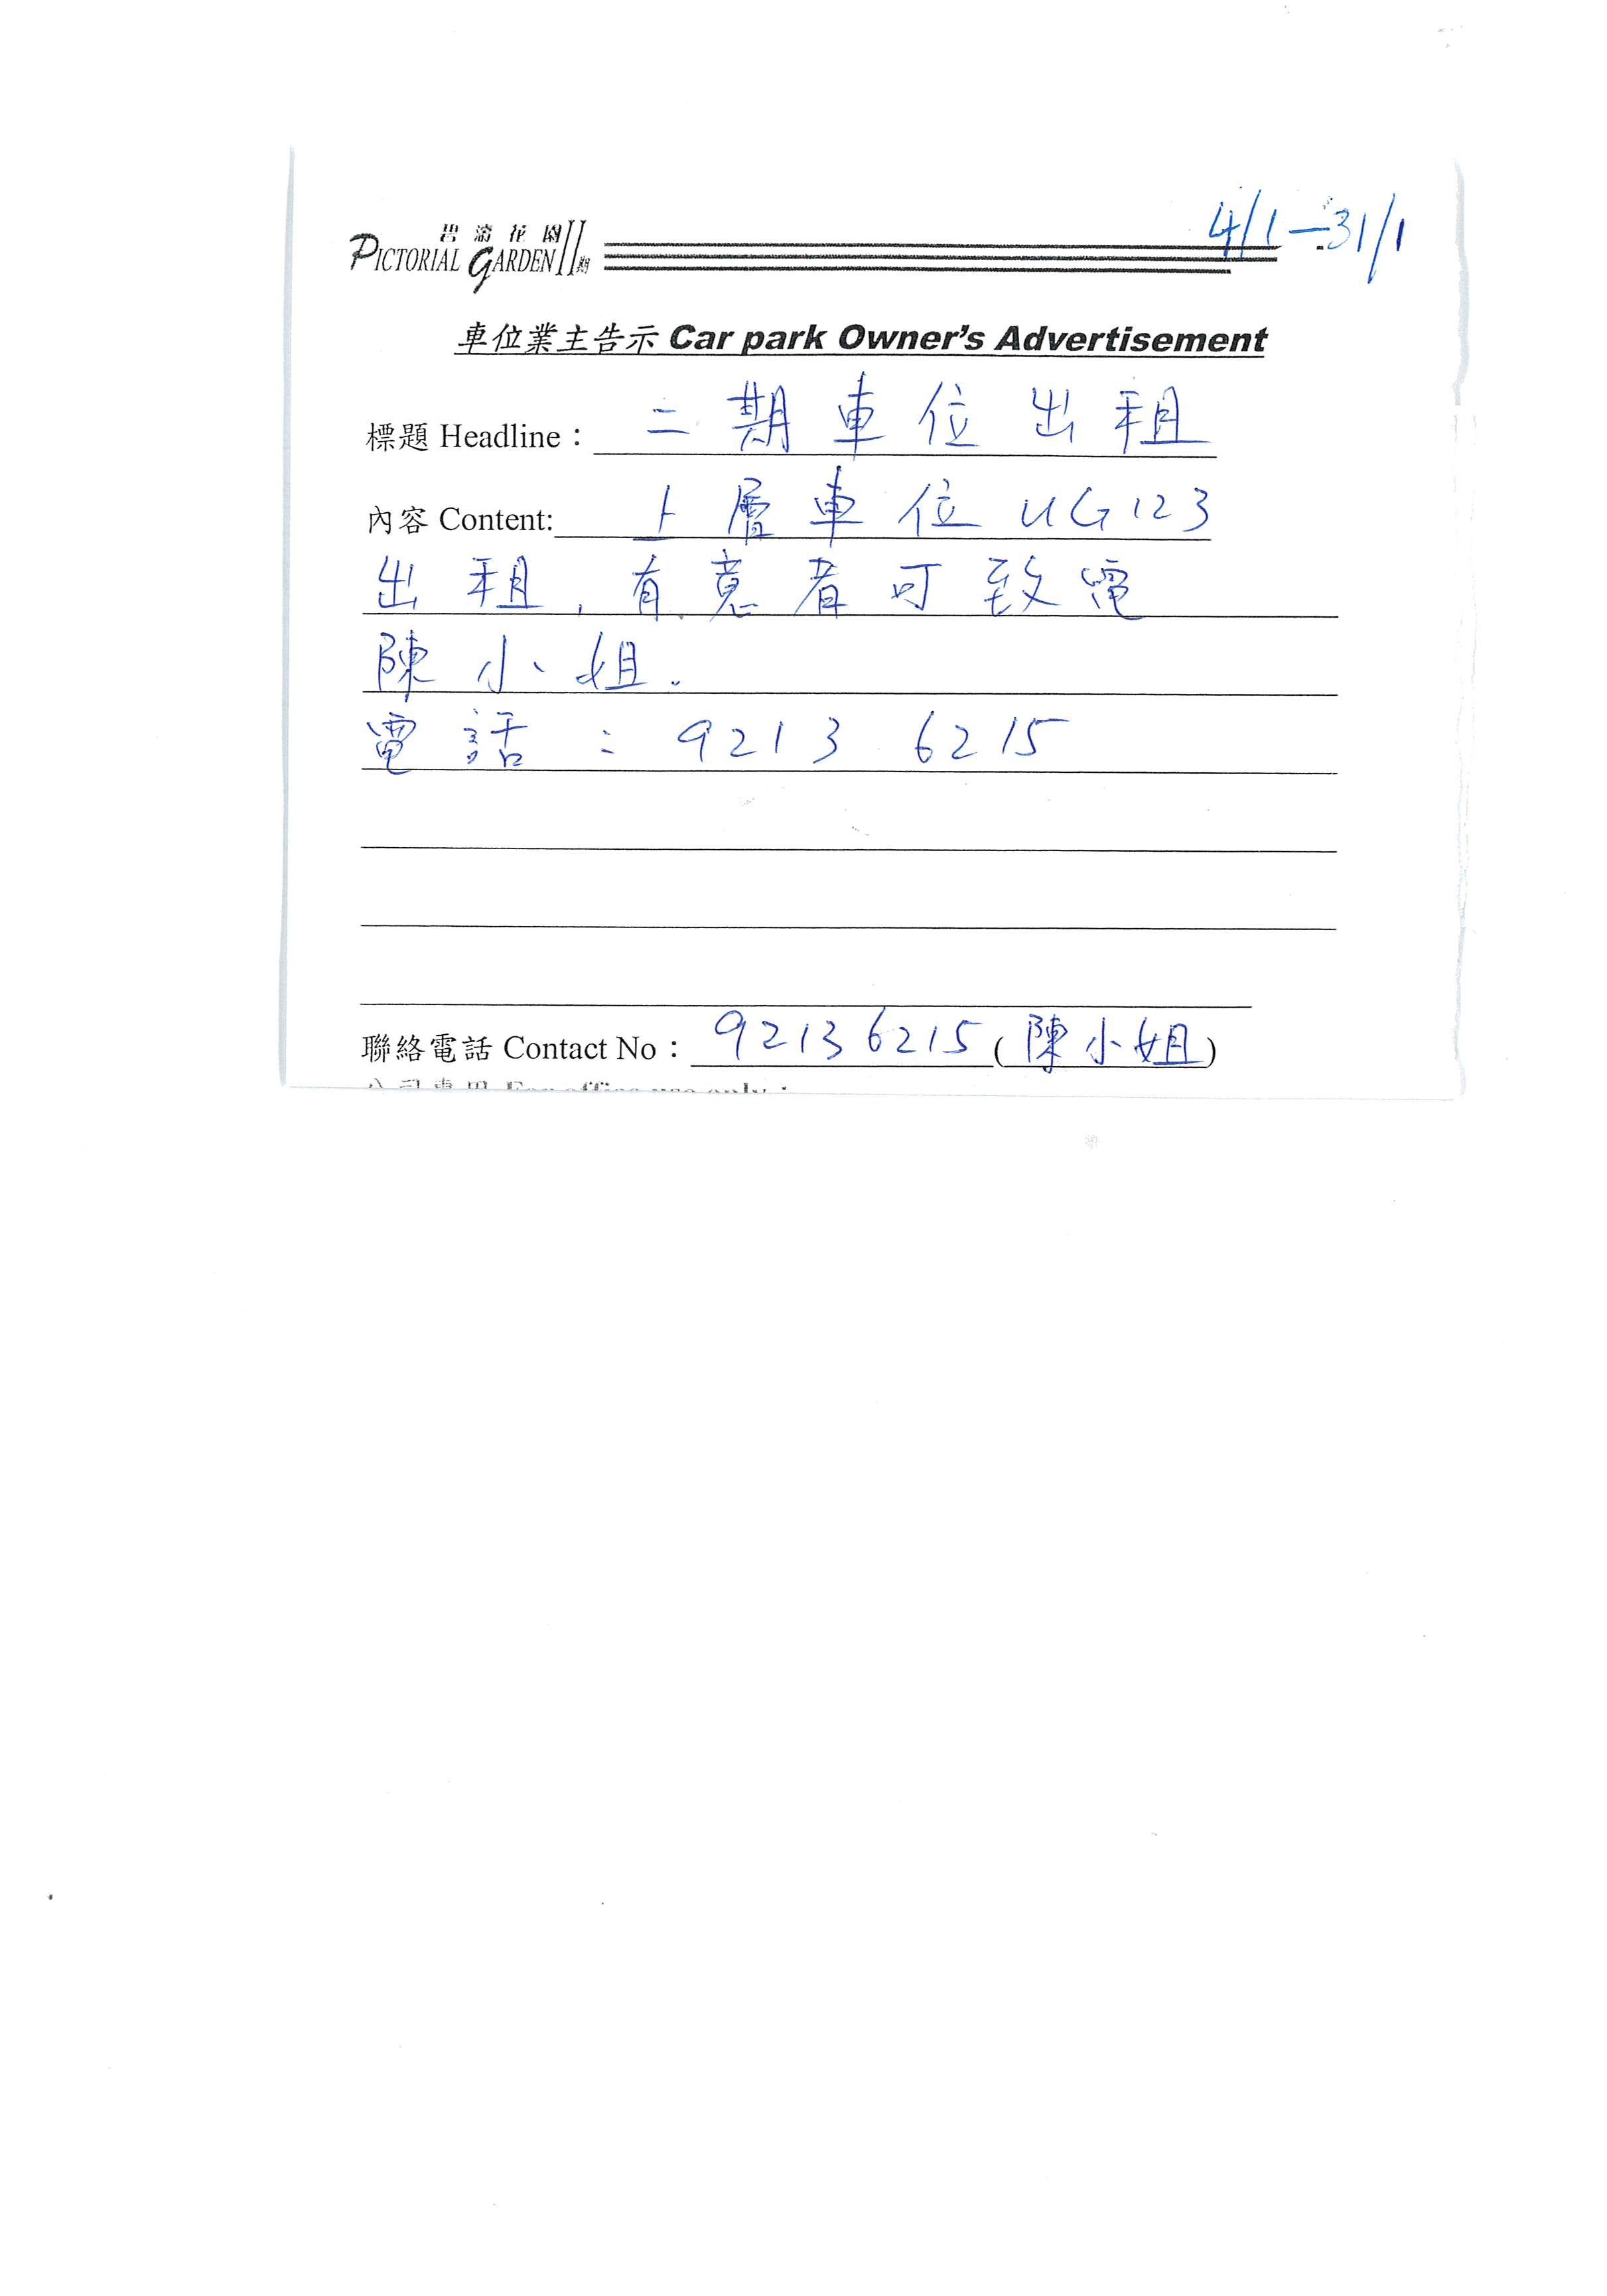 4/1 — 31/1
碧濤花園 II期
PICTORIAL GARDEN
車位業主告示 Car park Owner's Advertisement
標題 Headline： 二期車位出租
內容 Content: 上層車位 UG123
出租, 有意者可致電
陳小姐.
電話 : 9213 6215
聯絡電話 Contact No： 92136215 (陳小姐)
公司專用 For office use only：